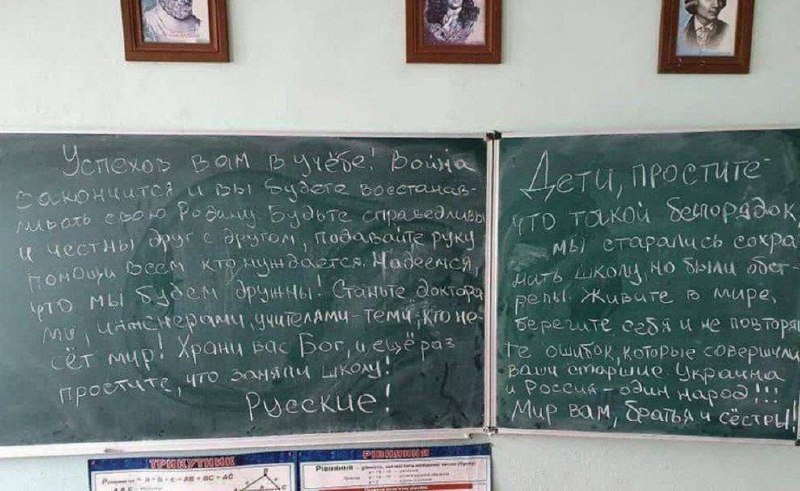 Успехов вам в учёбе! Война
закончится и вы будете восстанав-
ливать свою Родину. Будьте справедливы
и честны друг с другом, подавайте руку
помощи всем кто нуждается. Надеемся,
что мы будем дружны! Станьте доктора
ми, инженерами, учителями-теми, кто не-
сёт мир! Храни вас Бог, и ещё раз
простите, что заняли школу!
Русские!
Дети, простите-
что такой беспорядок,
мы старались сохра
нить школу, но были обст-
релы. Живите в мире,
берегите себя и не повторяй
те ошибок, которые совершили
ваши старшие Украина
и Россия-один народ!!!
Мир вам, братья и сёстры!
ТРИКУТНИК
Периметр = a + b + c = AB + BC + AC
РІВНЯННЯ
Рівняння –